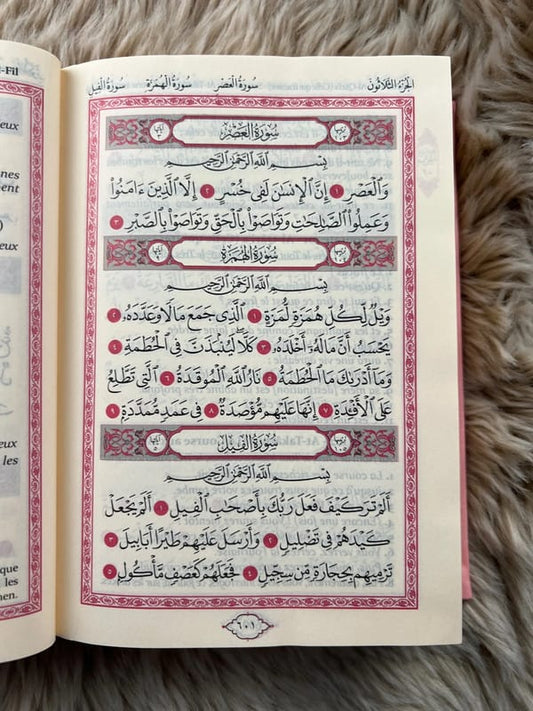 -Fil
الجزء الثلاثون
سورة العصر
سورة الهمزة
سورة الفيل
ترتيبها ١٠٣
سُورَةُ العَصْرِ
آياتها ٣
بِسْمِ اللَّهِ الرَّحْمَٰنِ الرَّحِيمِ
وَالْعَصْرِ ١ إِنَّ الْإِنسَٰنَ لَفِي خُسْرٍ ٢ إِلَّا الَّذِينَ ءَامَنُوا۟
وَعَمِلُوا۟ الصَّٰلِحَٰتِ وَتَوَاصَوْا۟ بِالْحَقِّ وَتَوَاصَوْا۟ بِالصَّبْرِ ٣
ترتيبها ١٠٤
سُورَةُ الهُمَزَةِ
آياتها ٩
بِسْمِ اللَّهِ الرَّحْمَٰنِ الرَّحِيمِ
وَيْلٌ لِّكُلِّ هُمَزَةٍ لُّمَزَةٍ ١ الَّذِي جَمَعَ مَالًا وَعَدَّدَهُۥ ٢
يَحْسَبُ أَنَّ مَالَهُۥٓ أَخْلَدَهُۥ ٣ كَلَّا لَيُنۢبَذَنَّ فِي الْحُطَمَةِ ٤
وَمَآ أَدْرَىٰكَ مَا الْحُطَمَةُ ٥ نَارُ اللَّهِ الْمُوقَدَةُ ٦ الَّتِي تَطَّلِعُ
عَلَى الْأَفْـِٔدَةِ ٧ إِنَّهَا عَلَيْهِم مُّؤْصَدَةٌ ٨ فِي عَمَدٍ مُّمَدَّدَةٍۭ ٩
ترتيبها ١٠٥
سُورَةُ الفِيلِ
آياتها ٥
بِسْمِ اللَّهِ الرَّحْمَٰنِ الرَّحِيمِ
أَلَمْ تَرَ كَيْفَ فَعَلَ رَبُّكَ بِأَصْحَٰبِ الْفِيلِ ١ أَلَمْ يَجْعَلْ
كَيْدَهُمْ فِي تَضْلِيلٍ ٢ وَأَرْسَلَ عَلَيْهِمْ طَيْرًا أَبَابِيلَ ٣
تَرْمِيهِم بِحِجَارَةٍ مِّن سِجِّيلٍ ٤ فَجَعَلَهُمْ كَعَصْفٍ مَّأْكُولٍۭ ٥
٦٠١